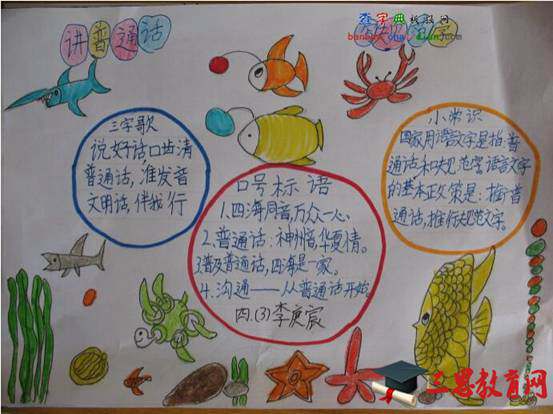 讲普通话
三字歌
说好话口齿清
普通话,准发音
文明话,伴我行
口号标语
1.四海同音,万众一心。
2.普通话:神州音,华夏情。
3.普及普通话,四海是一家。
4.沟通——从普通话开始
四.(3)李庚宸
小常识
国家用语言文字是指普
通话和规范汉字语言文字
的基本政策是:推广普
通话,推行规范文字。
查字典教教网
三思教育网